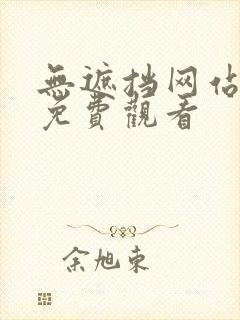 無遮挡网站
免費觀看
余旭東